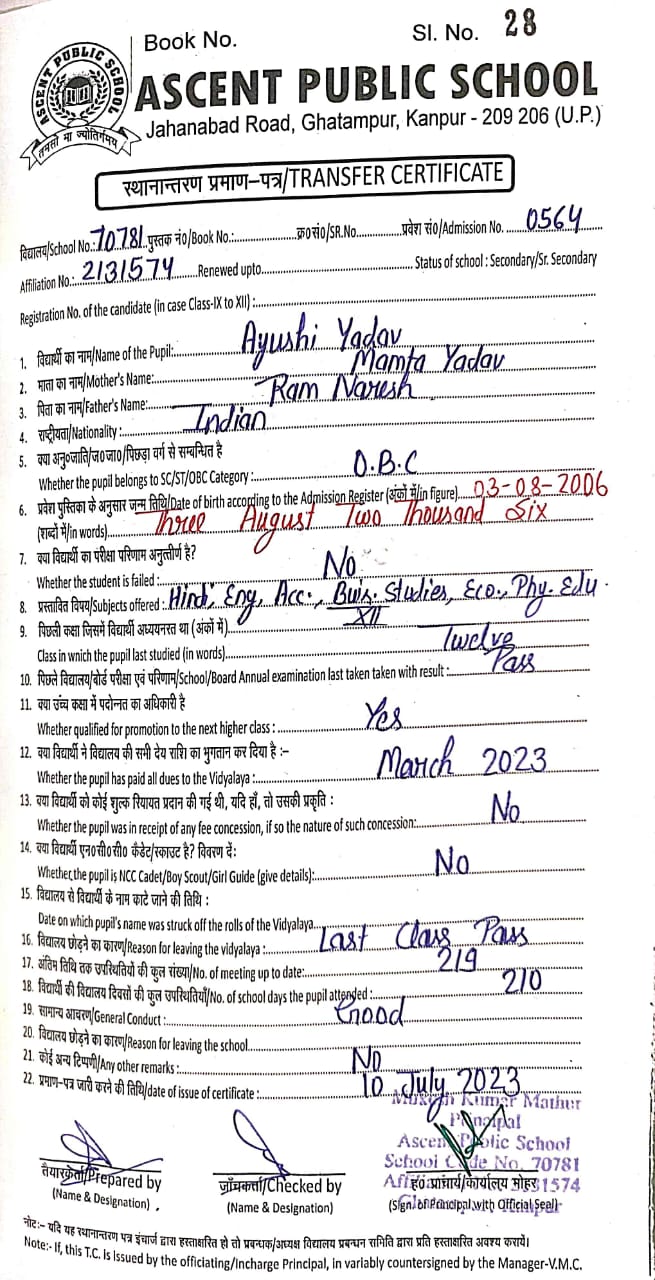 Book No.
Sl. No. 28
ASCENT PUBLIC SCHOOL
तमसो मा ज्योतिर्गमय
ASCENT PUBLIC SCHOOL
Jahanabad Road, Ghatampur, Kanpur - 209 206 (U.P.)
स्थानान्तरण प्रमाण-पत्र/TRANSFER CERTIFICATE
विद्यालय/School No.: 70781 पुस्तक नं0/Book No.:.............क्र0सं0/SR.No.............प्रवेश सं0/Admission No. 0564
Affiliation No.: 2131574 Renewed upto............ Status of school : Secondary/Sr. Secondary
Registration No. of the candidate (in case Class-IX to XII) :............
1. विद्यार्थी का नाम/Name of the Pupil: Ayushi Yadav
2. माता का नाम/Mother's Name: Mamta Yadav
3. पिता का नाम/Father's Name: Ram Naresh
4. राष्ट्रीयता/Nationality : Indian
5. क्या अनु०जाति/ज०जा०/पिछड़ा वर्ग से सम्बन्धित है
Whether the pupil belongs to SC/ST/OBC Category : O.B.C
6. प्रवेश पुस्तिका के अनुसार जन्म तिथि/Date of birth according to the Admission Register (अंकों में/in figure) 03-08-2006
(शब्दों में/in words) Three August Two Thousand Six
7. क्या विद्यार्थी का परीक्षा परिणाम अनुत्तीर्ण है?
Whether the student is failed : No
8. प्रस्तावित विषय/Subjects offered : Hindi, Eng, Acc., Buis. Studies, Eco., Phy. Edu.
9. पिछली कक्षा जिसमें विद्यार्थी अध्ययनरत था (अंकों में) XII
Class in wnich the pupil last studied (in words) Twelve
10. पिछले विद्यालय/बोर्ड परीक्षा एवं परिणाम/School/Board Annual examination last taken taken with result : Pass
11. क्या उच्च कक्षा में पदोन्नत का अधिकारी है
Whether qualified for promotion to the next higher class : Yes
12. क्या विद्यार्थी ने विद्यालय की सभी देय राशि का भुगतान कर दिया है :-
Whether the pupil has paid all dues to the Vidyalaya : March 2023
13. क्या विद्यार्थी को कोई शुल्क रियायत प्रदान की गई थी, यदि हाँ, तो उसकी प्रकृति :
Whether the pupil was in receipt of any fee concession, if so the nature of such concession: No
14. क्या विद्यार्थी एन०सी०सी० कैडेट/स्काउट है? विवरण दें:
Whether the pupil is NCC Cadet/Boy Scout/Girl Guide (give details): No
15. विद्यालय से विद्यार्थी के नाम काटे जाने की तिथि :
Date on which pupil's name was struck off the rolls of the Vidyalaya............
16. विद्यालय छोड़ने का कारण/Reason for leaving the vidyalaya : Last Class Pass
17. अंतिम तिथि तक उपस्थितियों की कुल संख्या/No. of meeting up to date: 219
18. विद्यार्थी की विद्यालय दिवसों की कुल उपस्थितियाँ/No. of school days the pupil attended : 210
19. सामान्य आचरण/General Conduct : Good
20. विद्यालय छोड़ने का कारण/Reason for leaving the school............
21. कोई अन्य टिप्पणी/Any other remarks : No
22. प्रमाण-पत्र जारी करने की तिथि/date of issue of certificate : 10 July 2023
Kumar Mather
Principal
Ascent Public School
School Code No. 70781
तैयारकर्ता/Prepared by
(Name & Designation)
जाँचकर्ता/Checked by
(Name & Designation)
ह0 प्राचार्य/कार्यालय मोहर
(Sign. of Principal, with Official Seal)
नोट:- यदि यह स्थानान्तरण पत्र इंचार्ज द्वारा हस्ताक्षरित हो तो प्रबन्धक/अध्यक्ष विद्यालय प्रबन्धन समिति द्वारा प्रति हस्ताक्षरित अवश्य करायें।
Note:- If, this T.C. is Issued by the officiating/Incharge Principal, in variably countersigned by the Manager-V.M.C.